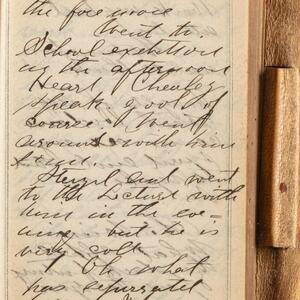 the fore noon
Went to
School exebition
in the afternoon
Heart Charley
speak. good of
course I went
around with him
Hazel and went
to the Lecture with
him in the eve-
ning. but he is
very cold
Oh what
has seperated